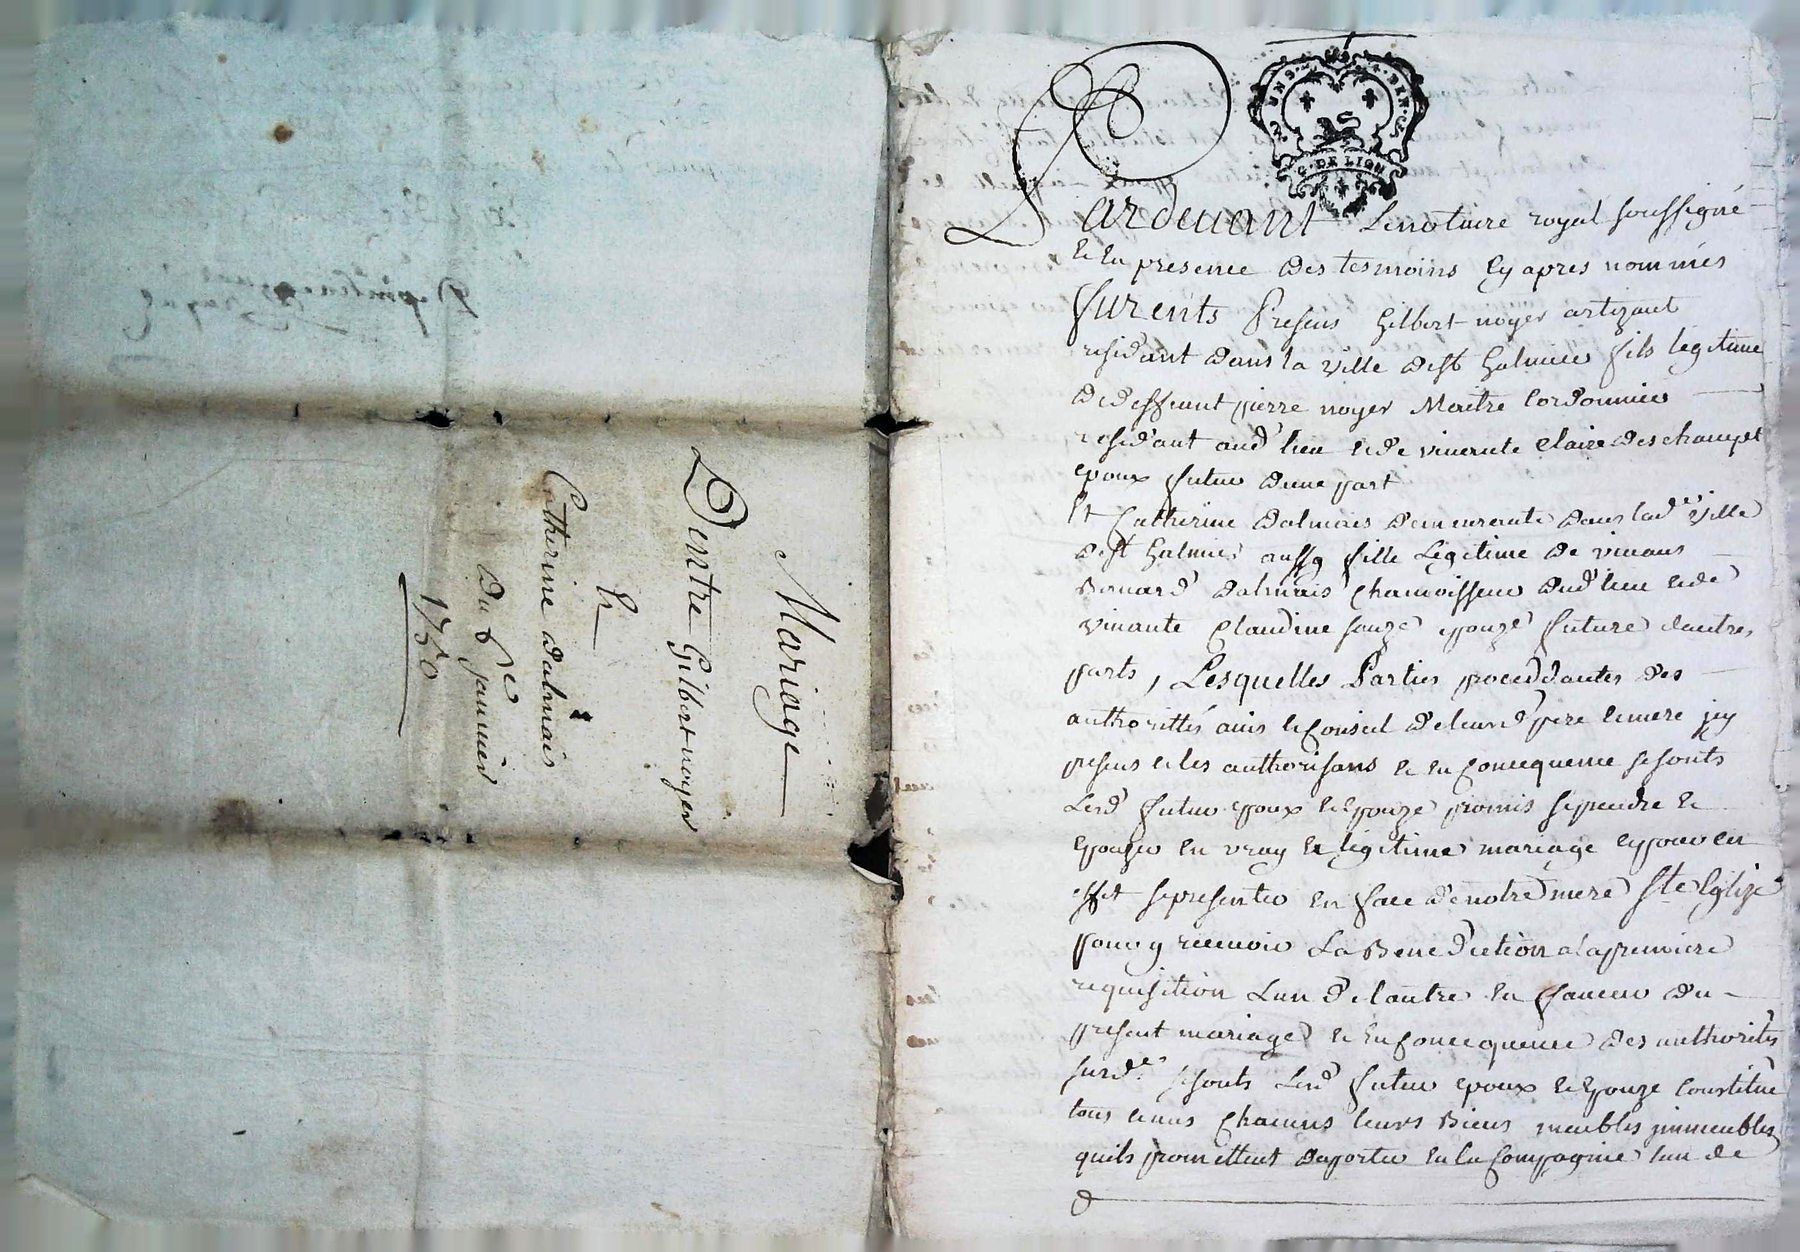 Mariage
Dentre Gilbert noyer
Et
Catherine dalmais
Du 6e janvier
1750
G. DE LION
Pardevant Le notaire royal soussigné
et en presence des tesmoins cy apres nommés
furents Presens Gilbert noyer artizant
residant dans la ville de st Galmier fils legitime
de deffeunt pierre noyer Maitre Cordonnier
residant aud lieu et de vivente Claire deschampt
epoux futur dune part
Et Catherine dalmais demeurente dans lad.e ville
de st Galmier aussy fille Legitime de vivans
Benard dalmais Chamoisseur dud lieu et de
vivante Claudine epouze future dautres
parts, Lesquelles Parties proceddantes des
authorittés avis et Conseil de leurd pere et mere jcy
presens et les authorisans et en Consequence se sonts
Lesd futur epoux et epouze promis se prendre et
epouzer en vray et legitime mariage et pour cet
effet se presenter en face de notre mere ste Eglize
pour y recevoir La Benediction a la premiere
requisition Lun de lautre en faveur du
present mariage et en Consequence des authorités
susd.es se sonts Lesd futur epoux et epouze Constitué
tous et uns Chacuns leurs Biens meubles jmmeubles
quils promettent daporter en la Compagnie lun de